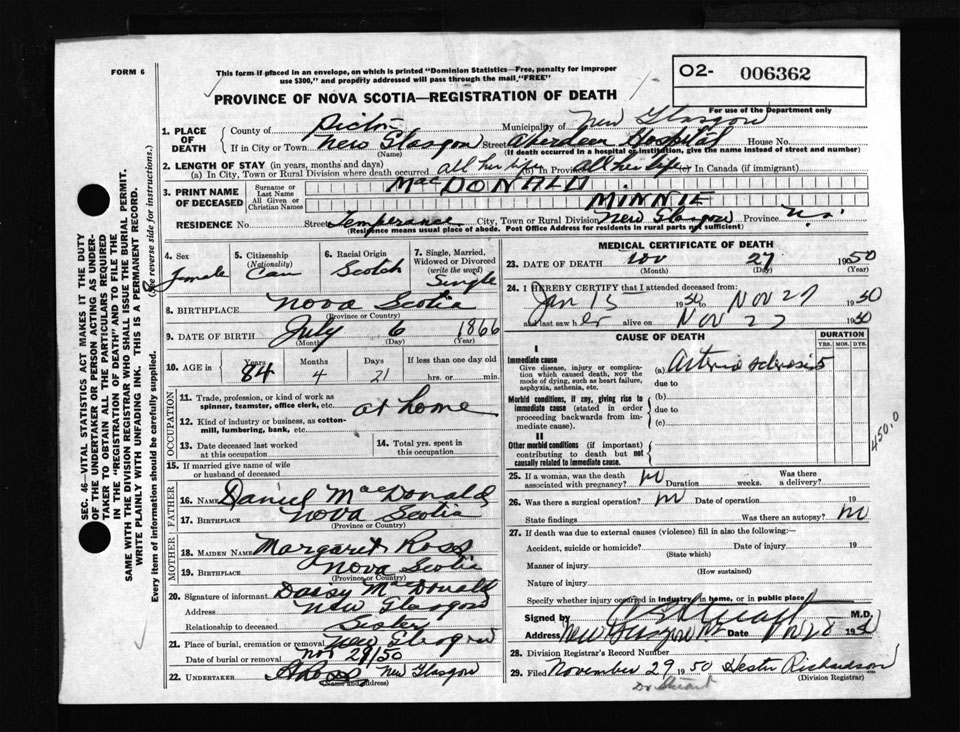 FORM 6
This form if placed in an envelope, on which is printed "Dominion Statistics—Free, penalty for improper
use $300," and properly addressed will pass through the mail, "FREE"
O2- 006362
PROVINCE OF NOVA SCOTIA—REGISTRATION OF DEATH
For use of the Department only
1. PLACE OF DEATH
County of Pictou Municipality of New Glasgow
If in City or Town New Glasgow Street Aberdeen Hospital House No.
(Name) (If death occurred in a hospital or institution, give the name instead of street and number)
2. LENGTH OF STAY (in years, months and days)
(a) In City, Town or Rural Division where death occurred all her life (b) In Province all her life (c) In Canada (if immigrant)
3. PRINT NAME OF DECEASED
Surname or Last Name MacDONALD
All Given or Christian Names MINNIE
RESIDENCE No. Street Temperance City, Town or Rural Division New Glasgow Province N.S.
(Residence means usual place of abode. Post Office Address for residents in rural parts not sufficient)
4. Sex Female
5. Citizenship (Nationality) Can
6. Racial Origin Scotch
7. Single, Married, Widowed or Divorced (write the word) Single
8. BIRTHPLACE Nova Scotia
(Province or Country)
9. DATE OF BIRTH July 6 1866
(Month) (Day) (Year)
10. AGE in Years Months Days If less than one day old
84 4 21 hrs. or min.
OCCUPATION
11. Trade, profession, or kind of work as spinner, teamster, office clerk, etc. at home
12. Kind of industry or business, as cotton-mill, lumbering, bank, etc.
13. Date deceased last worked at this occupation
14. Total yrs. spent in this occupation
15. If married give name of wife or husband of deceased
FATHER
16. NAME Daniel MacDonald
17. BIRTHPLACE Nova Scotia
(Province or Country)
MOTHER
18. MAIDEN NAME Margaret Ross
19. BIRTHPLACE Nova Scotia
(Province or Country)
20. Signature of informant Daisy MacDonald
Address New Glasgow
Relationship to deceased Sister
21. Place of burial, cremation or removal New Glasgow
Date of burial or removal Nov 29/50
22. UNDERTAKER New Glasgow
(Name and address)
MEDICAL CERTIFICATE OF DEATH
23. DATE OF DEATH Nov 27 1950
(Month) (Day) (Year)
24. I HEREBY CERTIFY that I attended deceased from:
Jan 15 1950 to Nov 27 1950
and last saw her alive on Nov 27 1950
CAUSE OF DEATH DURATION
YRS. MOS. DYS.
I
Immediate cause
Give disease, injury or complication which caused death, not the mode of dying, such as heart failure, asphyxia, asthenia, etc.
(a) Arteriosclerosis 5
due to
Morbid conditions, if any, giving rise to immediate cause (stated in order proceeding backwards from immediate cause).
(b)
due to
(c)
II
Other morbid conditions (if important) contributing to death but not causally related to immediate cause.
450.0
25. If a woman, was the death associated with pregnancy? No Duration weeks. Was there a delivery?
26. Was there a surgical operation? No Date of operation 19
State findings Was there an autopsy? No
27. If death was due to external causes (violence) fill in also the following:
Accident, suicide or homicide? Date of injury 19
(State which)
Manner of injury
(How sustained)
Nature of injury
Specify whether injury occurred in industry, in home, or in public place
Signed by M.D.
Address New Glasgow NS Date Nov 28 1950
28. Division Registrar's Record Number
29. Filed November 29 1950 Hester Richardson
(Division Registrar)
Dr Stuart
SEC. 46—VITAL STATISTICS ACT MAKES IT THE DUTY
OF THE UNDERTAKER OR PERSON ACTING AS UNDER-
TAKER TO OBTAIN ALL THE PARTICULARS REQUIRED
IN THE "REGISTRATION OF DEATH" AND TO FILE THE
SAME WITH THE DIVISION REGISTRAR WHO SHALL ISSUE THE BURIAL PERMIT.
WRITE PLAINLY WITH UNFADING INK. THIS IS A PERMANENT RECORD.
Every item of information should be carefully supplied. (See reverse side for instructions.)